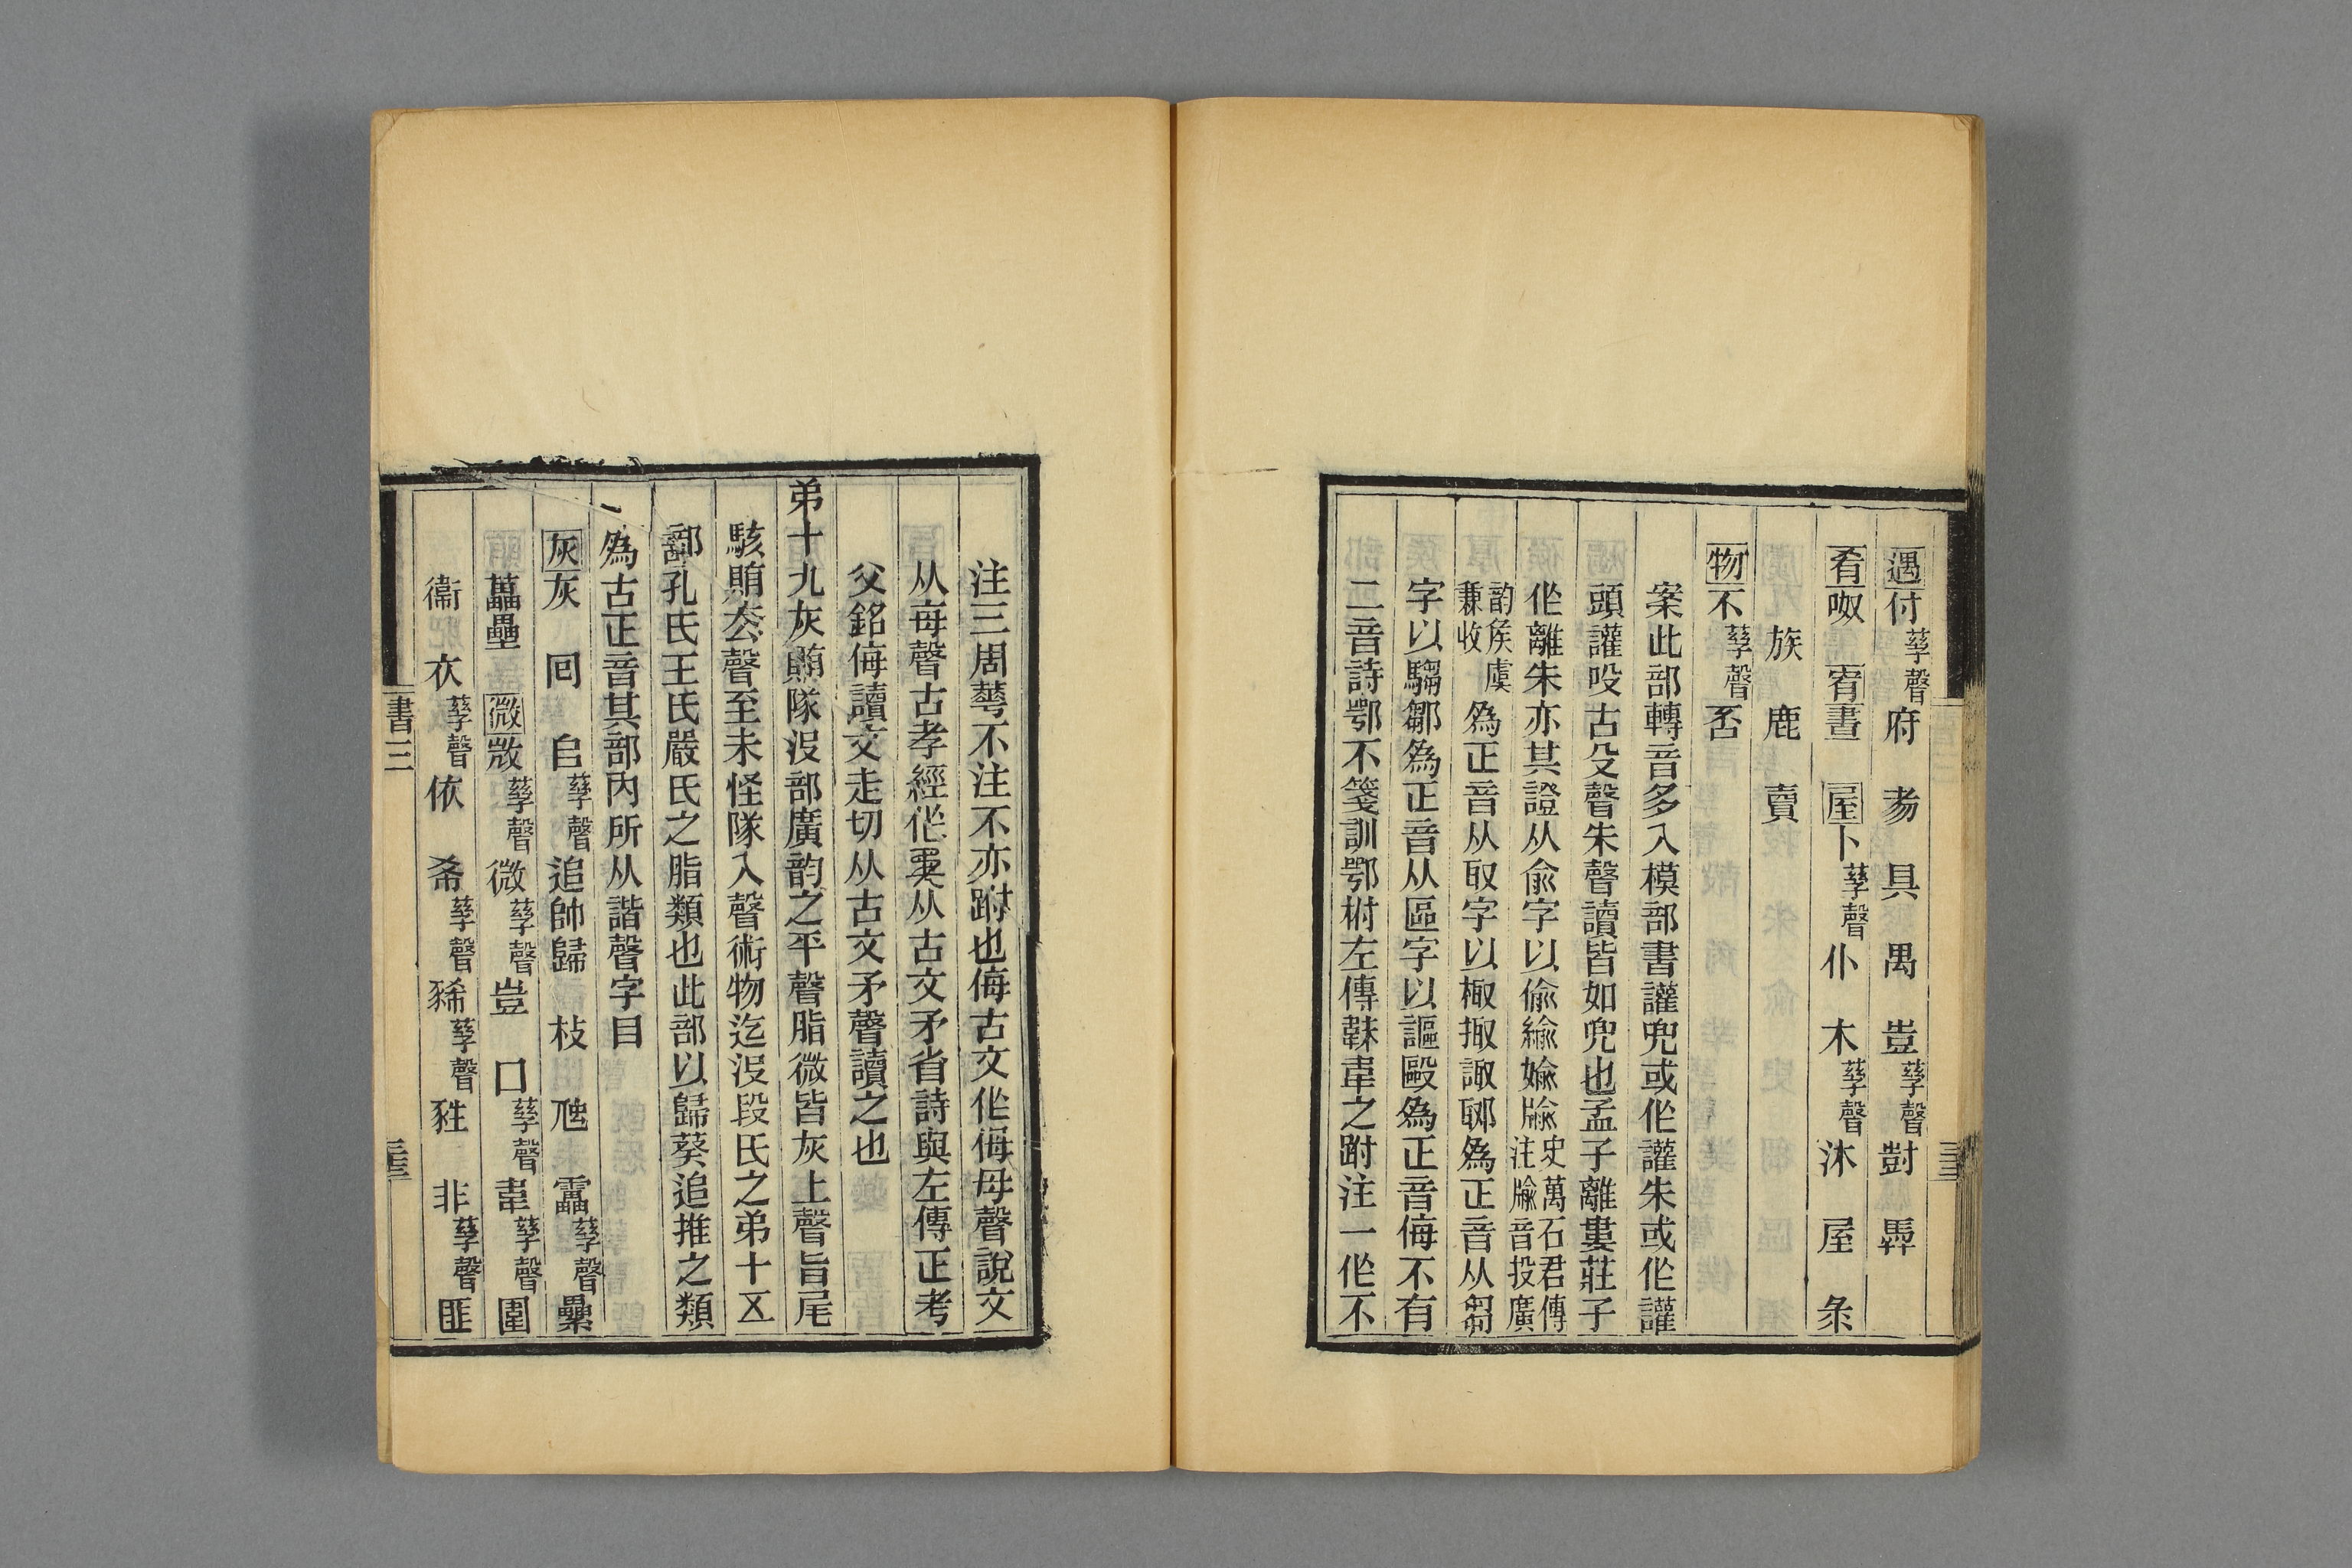 遇付孳聲府 豦 具 禺 豈孳聲尌 馵
肴呶 宥晝 屋卜孳聲仆 木孳聲沐 屋 彔
族 鹿 賣
物不孳聲否
案此部轉音多入模部書讙兜或作讙朱或作讙
頭讙吺古殳聲朱聲讀皆如兜也孟子離婁莊子
作離朱亦其證从俞字以偷緰婾牏史萬石君傳注牏音投廣
韵矦虞兼收為正音从取字以棷掫諏郰為正音从芻
字以騶鄒為正音从區字以謳毆為正音侮不有
二音詩鄂不箋訓鄂柎左傳韎韋之跗注一作不
注三周蕚不注不亦跗也侮古文作㑄母聲說文
从每聲古孝經作㚊从古文矛省詩與左傳正考
父銘侮讀文走切从古文矛聲讀之也
弟十九灰賄隊沒部廣韵之平聲脂微皆灰上聲旨尾
駭賄去聲至未怪隊入聲術物迄沒段氏之弟十五
部孔氏王氏嚴氏之脂類也此部以歸葵追推之類
為古正音其部內所从諧聲字目
灰灰 回 𠂤孳聲追帥歸 枚 虺 靁孳聲纍
藟壘 微𢼸孳聲微孳聲豈 囗孳聲韋孳聲圍
衞 衣孳聲依 㣇孳聲豨孳聲 非孳聲匪
書三